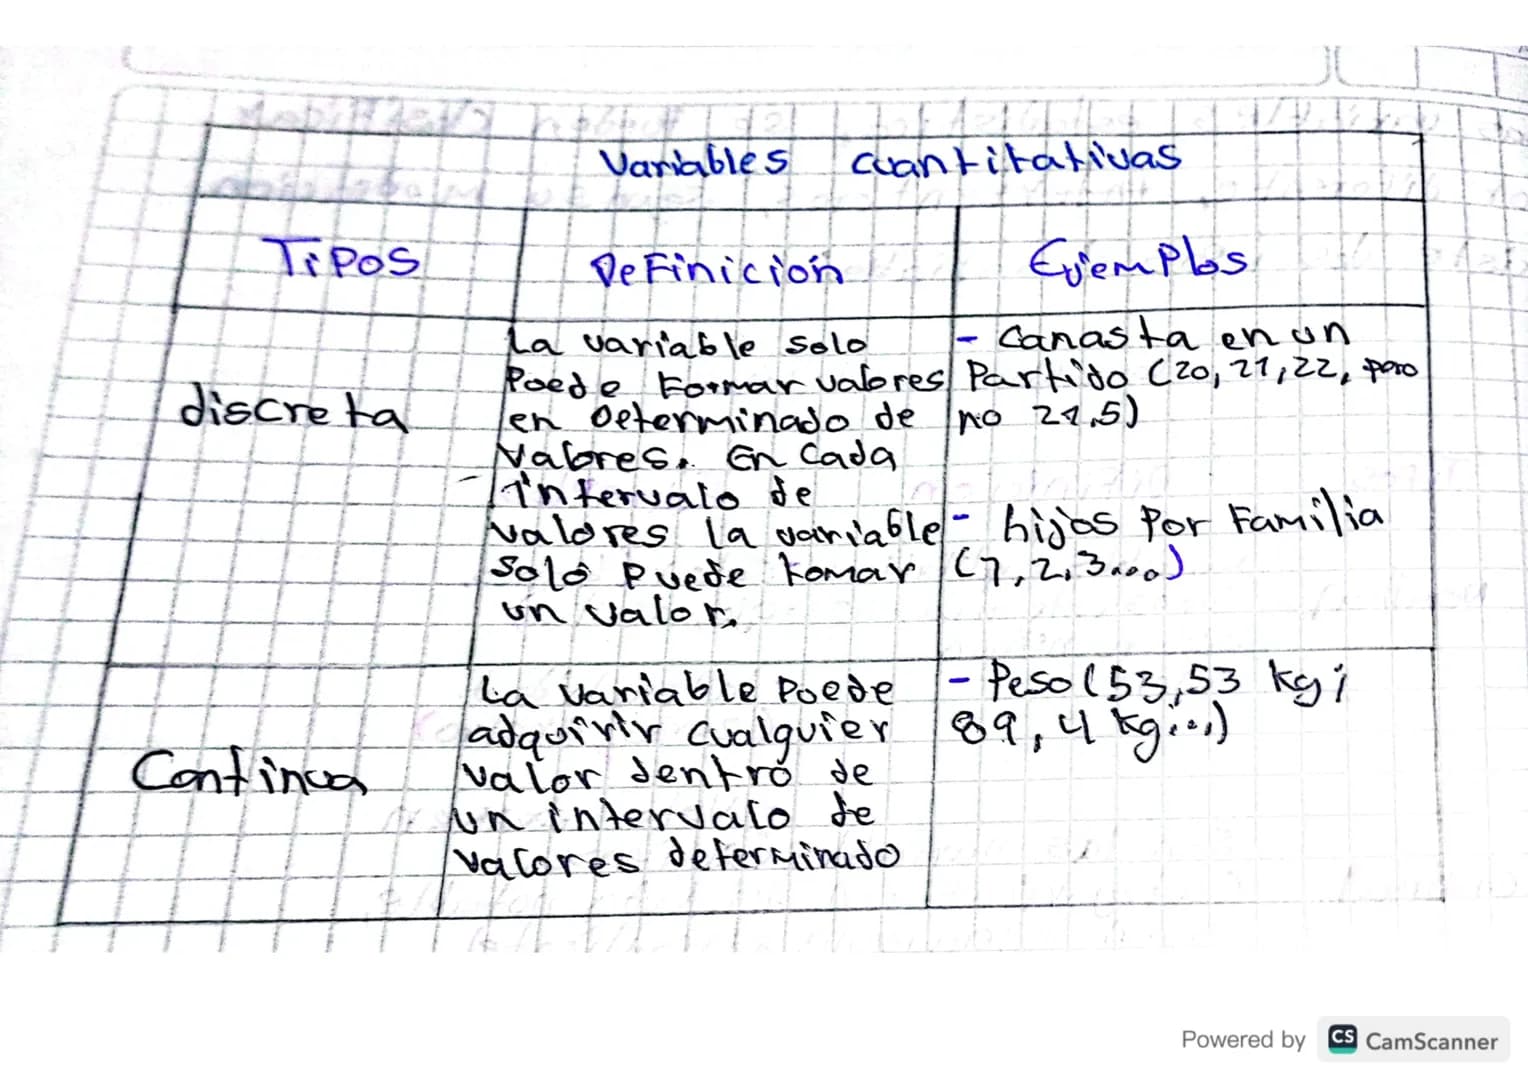 Variables cuantitativas
Tipos Definición Ejemplos
discreta
La variable solo
Poede tormar valores
en Determinado de
valores. En Cada
intervalo de
valores la variable
Solo Puede tomar
un valor.
- Canasta en un
Partido (20, 21, 22, pero
no 21,5)
- hijos Por Familia
(1, 2, 3...)
Continua
La variable Poede
adquirir cualquier
valor dentro de
un intervalo de
valores determinado
- Peso (53,53 kg;
89,4 kg;...)
Powered by CS CamScanner